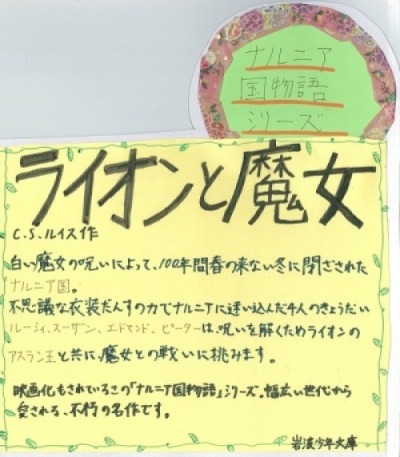 ナルニア
国物語
シリーズ
ライオンと魔女
C.S.ルイス作
白い魔女の呪いによって、100年間春の来ない冬に閉ざされた
ナルニア国。
不思議な衣装だんすの力でナルニアに迷い込んだ4人のきょうだい
ルーシィ、スーザン、エドマンド、ピーターは、呪いを解くためライオンの
アスラン王と共に、魔女との戦いに挑みます。
映画化もされているこの「ナルニア国物語」シリーズ。幅広い世代から
愛される、不朽の名作です。
岩波少年文庫